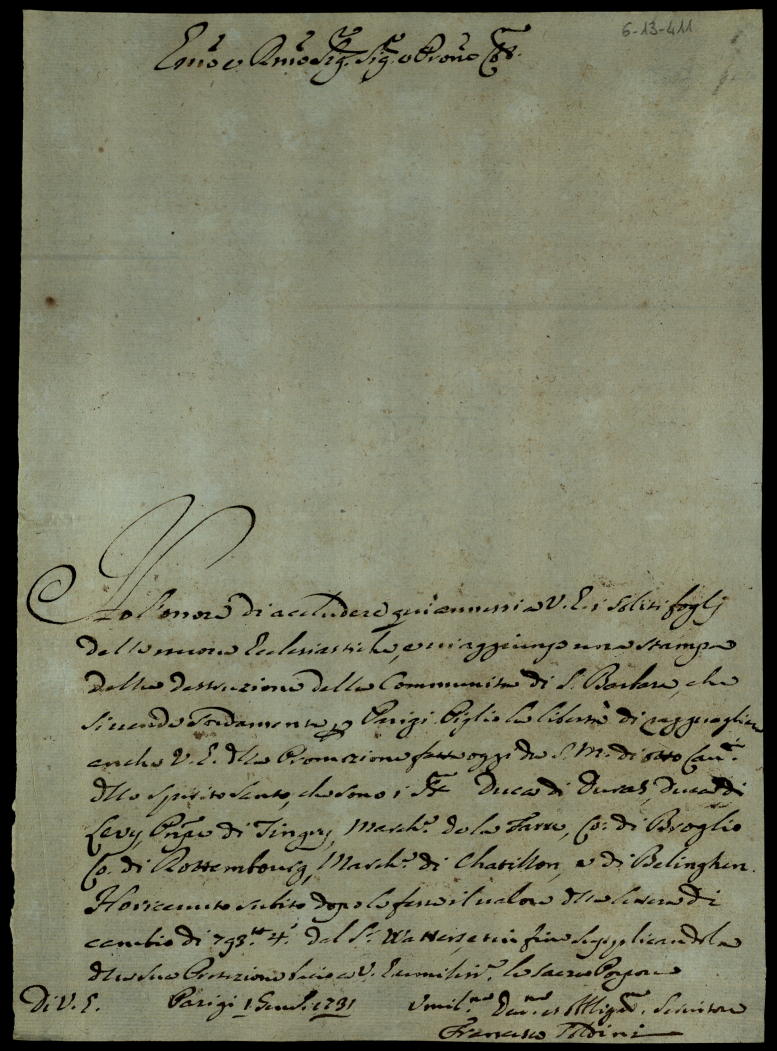 6-13-411
Emo e Rmo Sig. Sig. e Prone Colmo
Ho l'onore di accludere qui annessi a V. E. i soliti foglj
delle nuove Ecclesiastiche, e vi aggiungo una stampa
della destruzione della Communità di S. Barbara, che
si vende sordamente p Parigi. Piglio la libertà di ragguagliare
anche V. E. della Promozione fatta oggi da S. M. di otto Cavri
dello Spirito Santo, che sono i Duca di Duras, Duca di
Levy, Pñpe di Tingry, March. de la Farre, Co: di Broglio
Co. di Rottembourg, March. di Chatillon, e di Belinghen.
Ho ricevuto subito dopo le feste il valore della lettera di
cambio di 798.tt 4.s dal Sr. Watters, e in fine supplicandola
della sua Protezione bacio a V. E. umilmte. la Sacra Porpora
Di V. E. Parigi 1 Gen. 1731 Umil.mo Dev.mo et Obbligmo. Servitore
Francesco